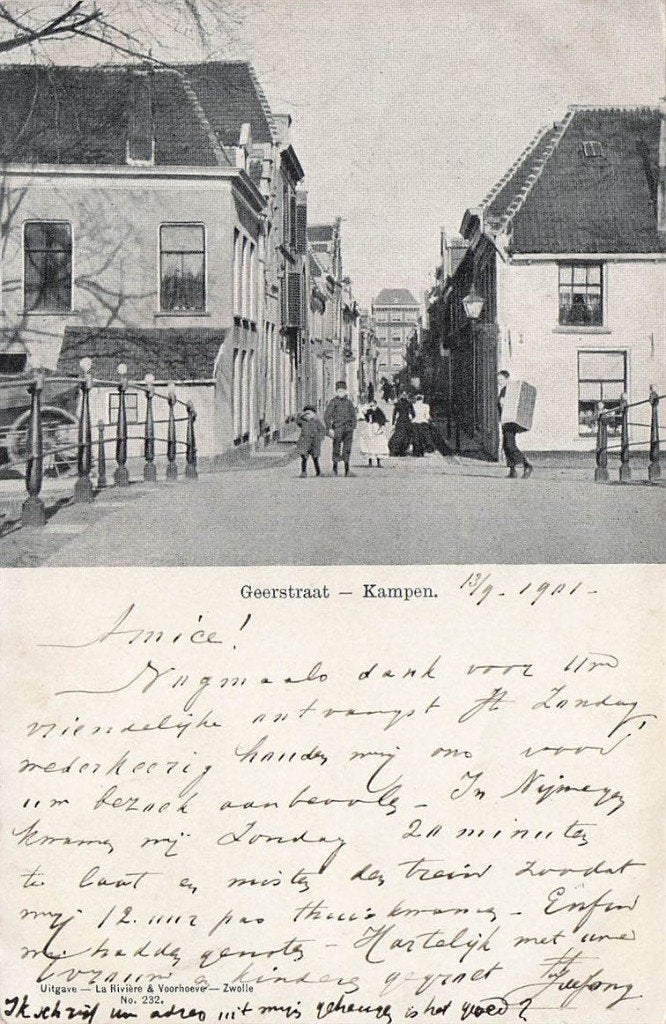 Geerstraat – Kampen. 13/9 - 1901 -
Amice!
Nogmaals dank voor Uw
vriendelijke ontvangst Zondag,
wederkeerig houden wij ons voor
uw bezoek aanbevolen – In Nijmegen
kwamen wij Zondag 20 minuten
te laat en misten den trein zoodat
wij 12 uur pas thuiskwamen – Enfin
wij hadden genoten – Hartelijk met uwe
vrouw en kinderen gegroet
Uitgave — La Rivière & Voorhoeve — Zwolle
No. 232.
Ik schrijf uw adres uit mijn geheugen is het goed?